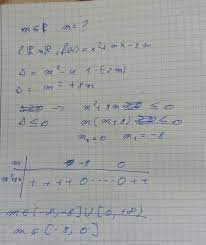 m ∈ ℝ m = ?
f: ℝ → ℝ, f(x) = x² + mx - 2m
Δ = m² - 4 · 1 · (-2m)
Δ = m² + 8m
⇒ m² + 8m ≤ 0
Δ ≤ 0 m(m+8) ≤ 0
m₁ = 0 m₂ = -8
m -8 0
m²+8m + + + + 0 - - - - 0 + +
m ∈ (-∞, -8] ∪ [0, +∞)
m ∈ [-8, 0]